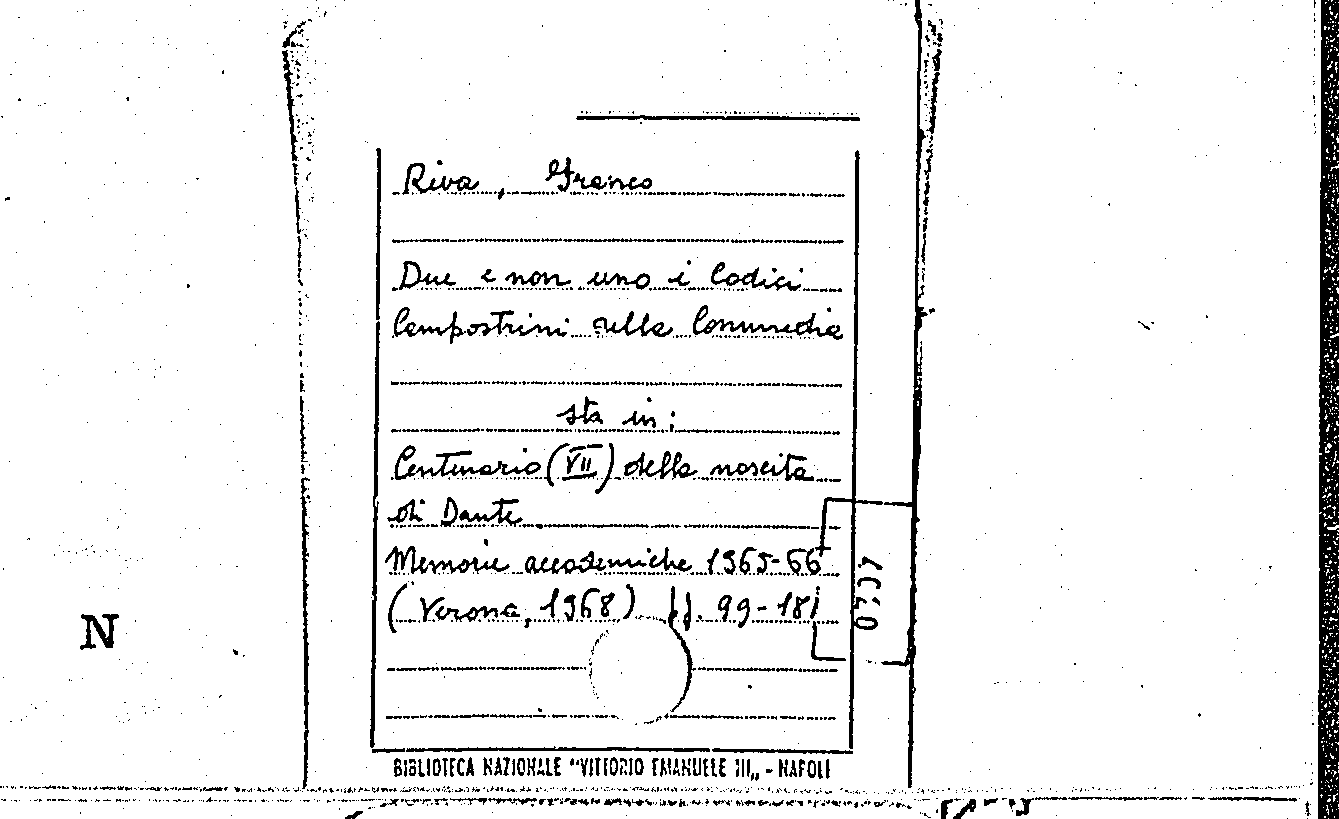 Riva, Franco
Due e non uno i Codici
Campostrini della Commedia
sta in:
Centenario (VII) della nascita
di Dante
Memorie accademiche 1965-66
(Verona, 1968) pp. 99-181
N
BIBLIOTECA NAZIONALE "VITTORIO EMANUELE III„ - NAPOLI